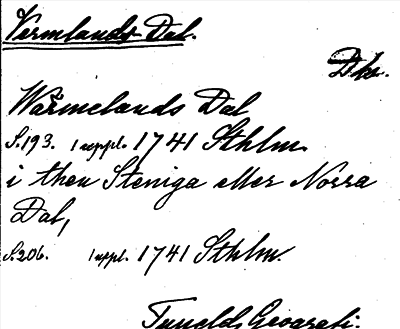 Vermlands Dal.
Dka.
Wärmelands Dal
S.193. 1 uppl. 1741 Sthlm.
i then Steniga eller Norra
Dal,
S.206. 1 uppl. 1741 Sthlm.
Tunelds Geografi.